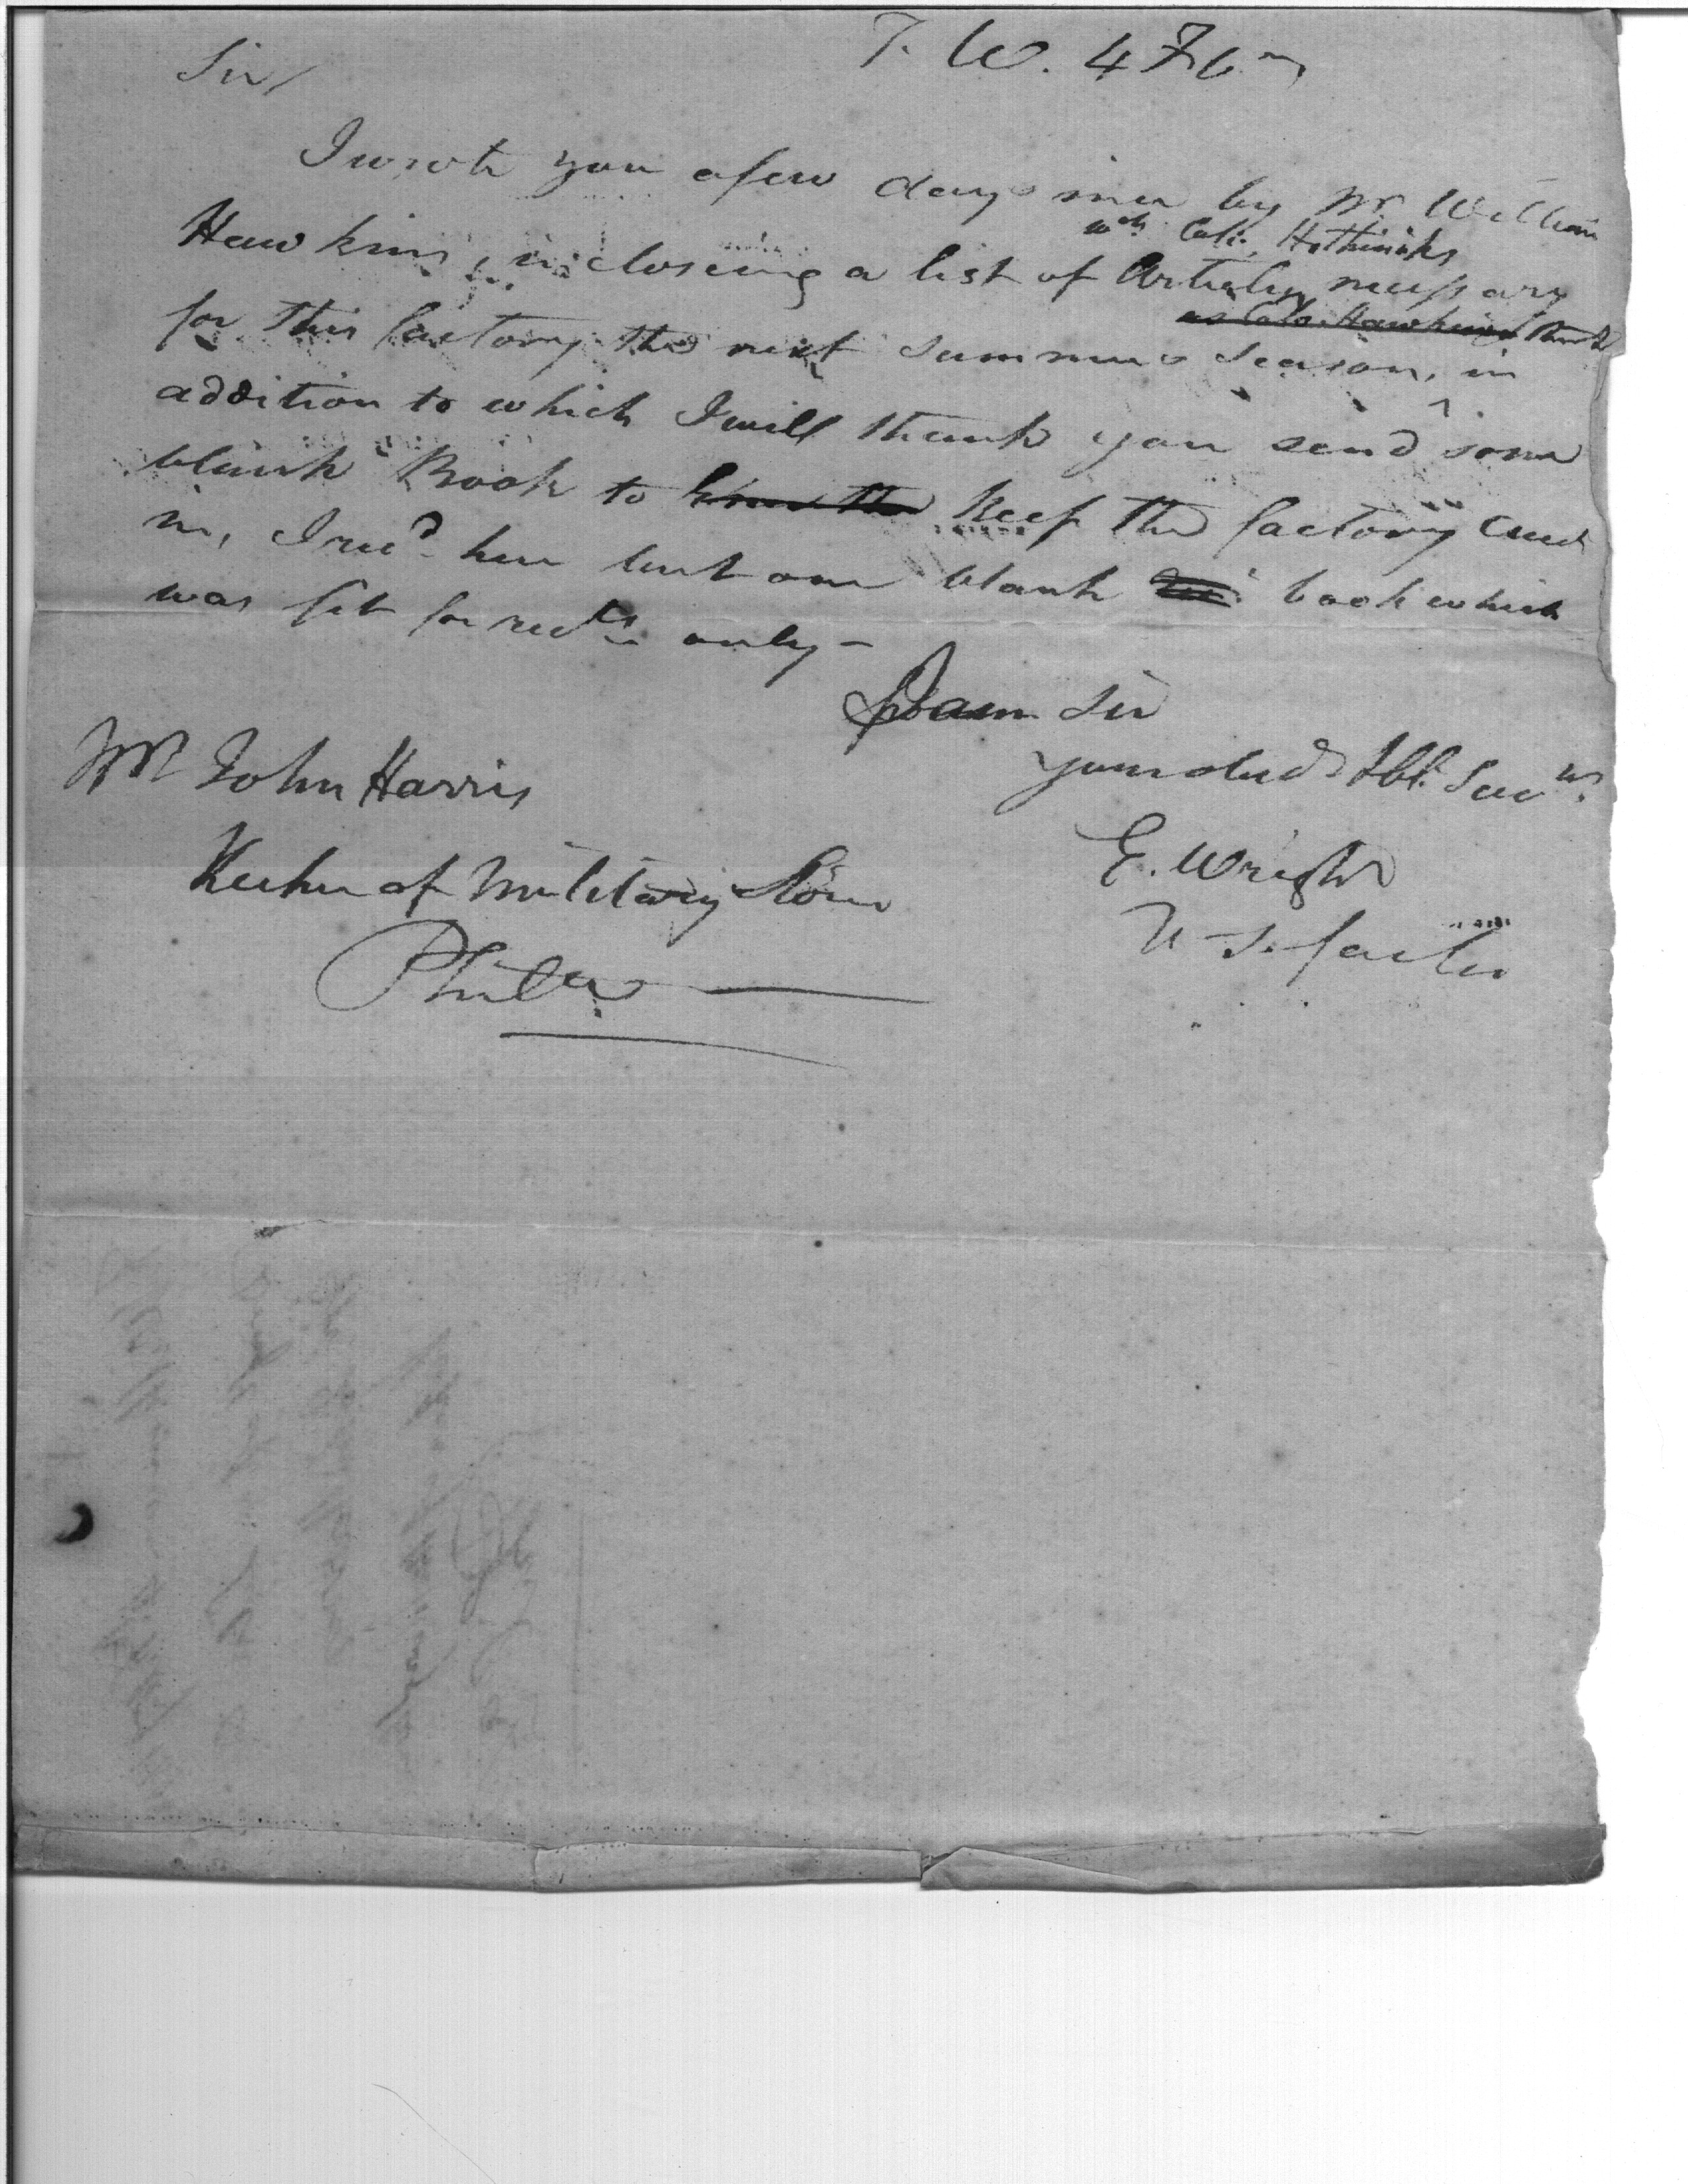 Sir/
F. W. 4 Feb
I wrote you a few days since by Mr William
wch Colo. H. thinks
Hawkins, inclosing a list of Articles necessary
as Colo. Hawkins
for this factory the next summer season, in
addition to which I will thank you send some
blank Book to keep the factory
in, I recd here but one blank book which
was fit for only —
I am Sir
your Obt. Servt.
Mr John Harris
E. Wright
Keeher of Military Stores
U. S. factor
Phila.